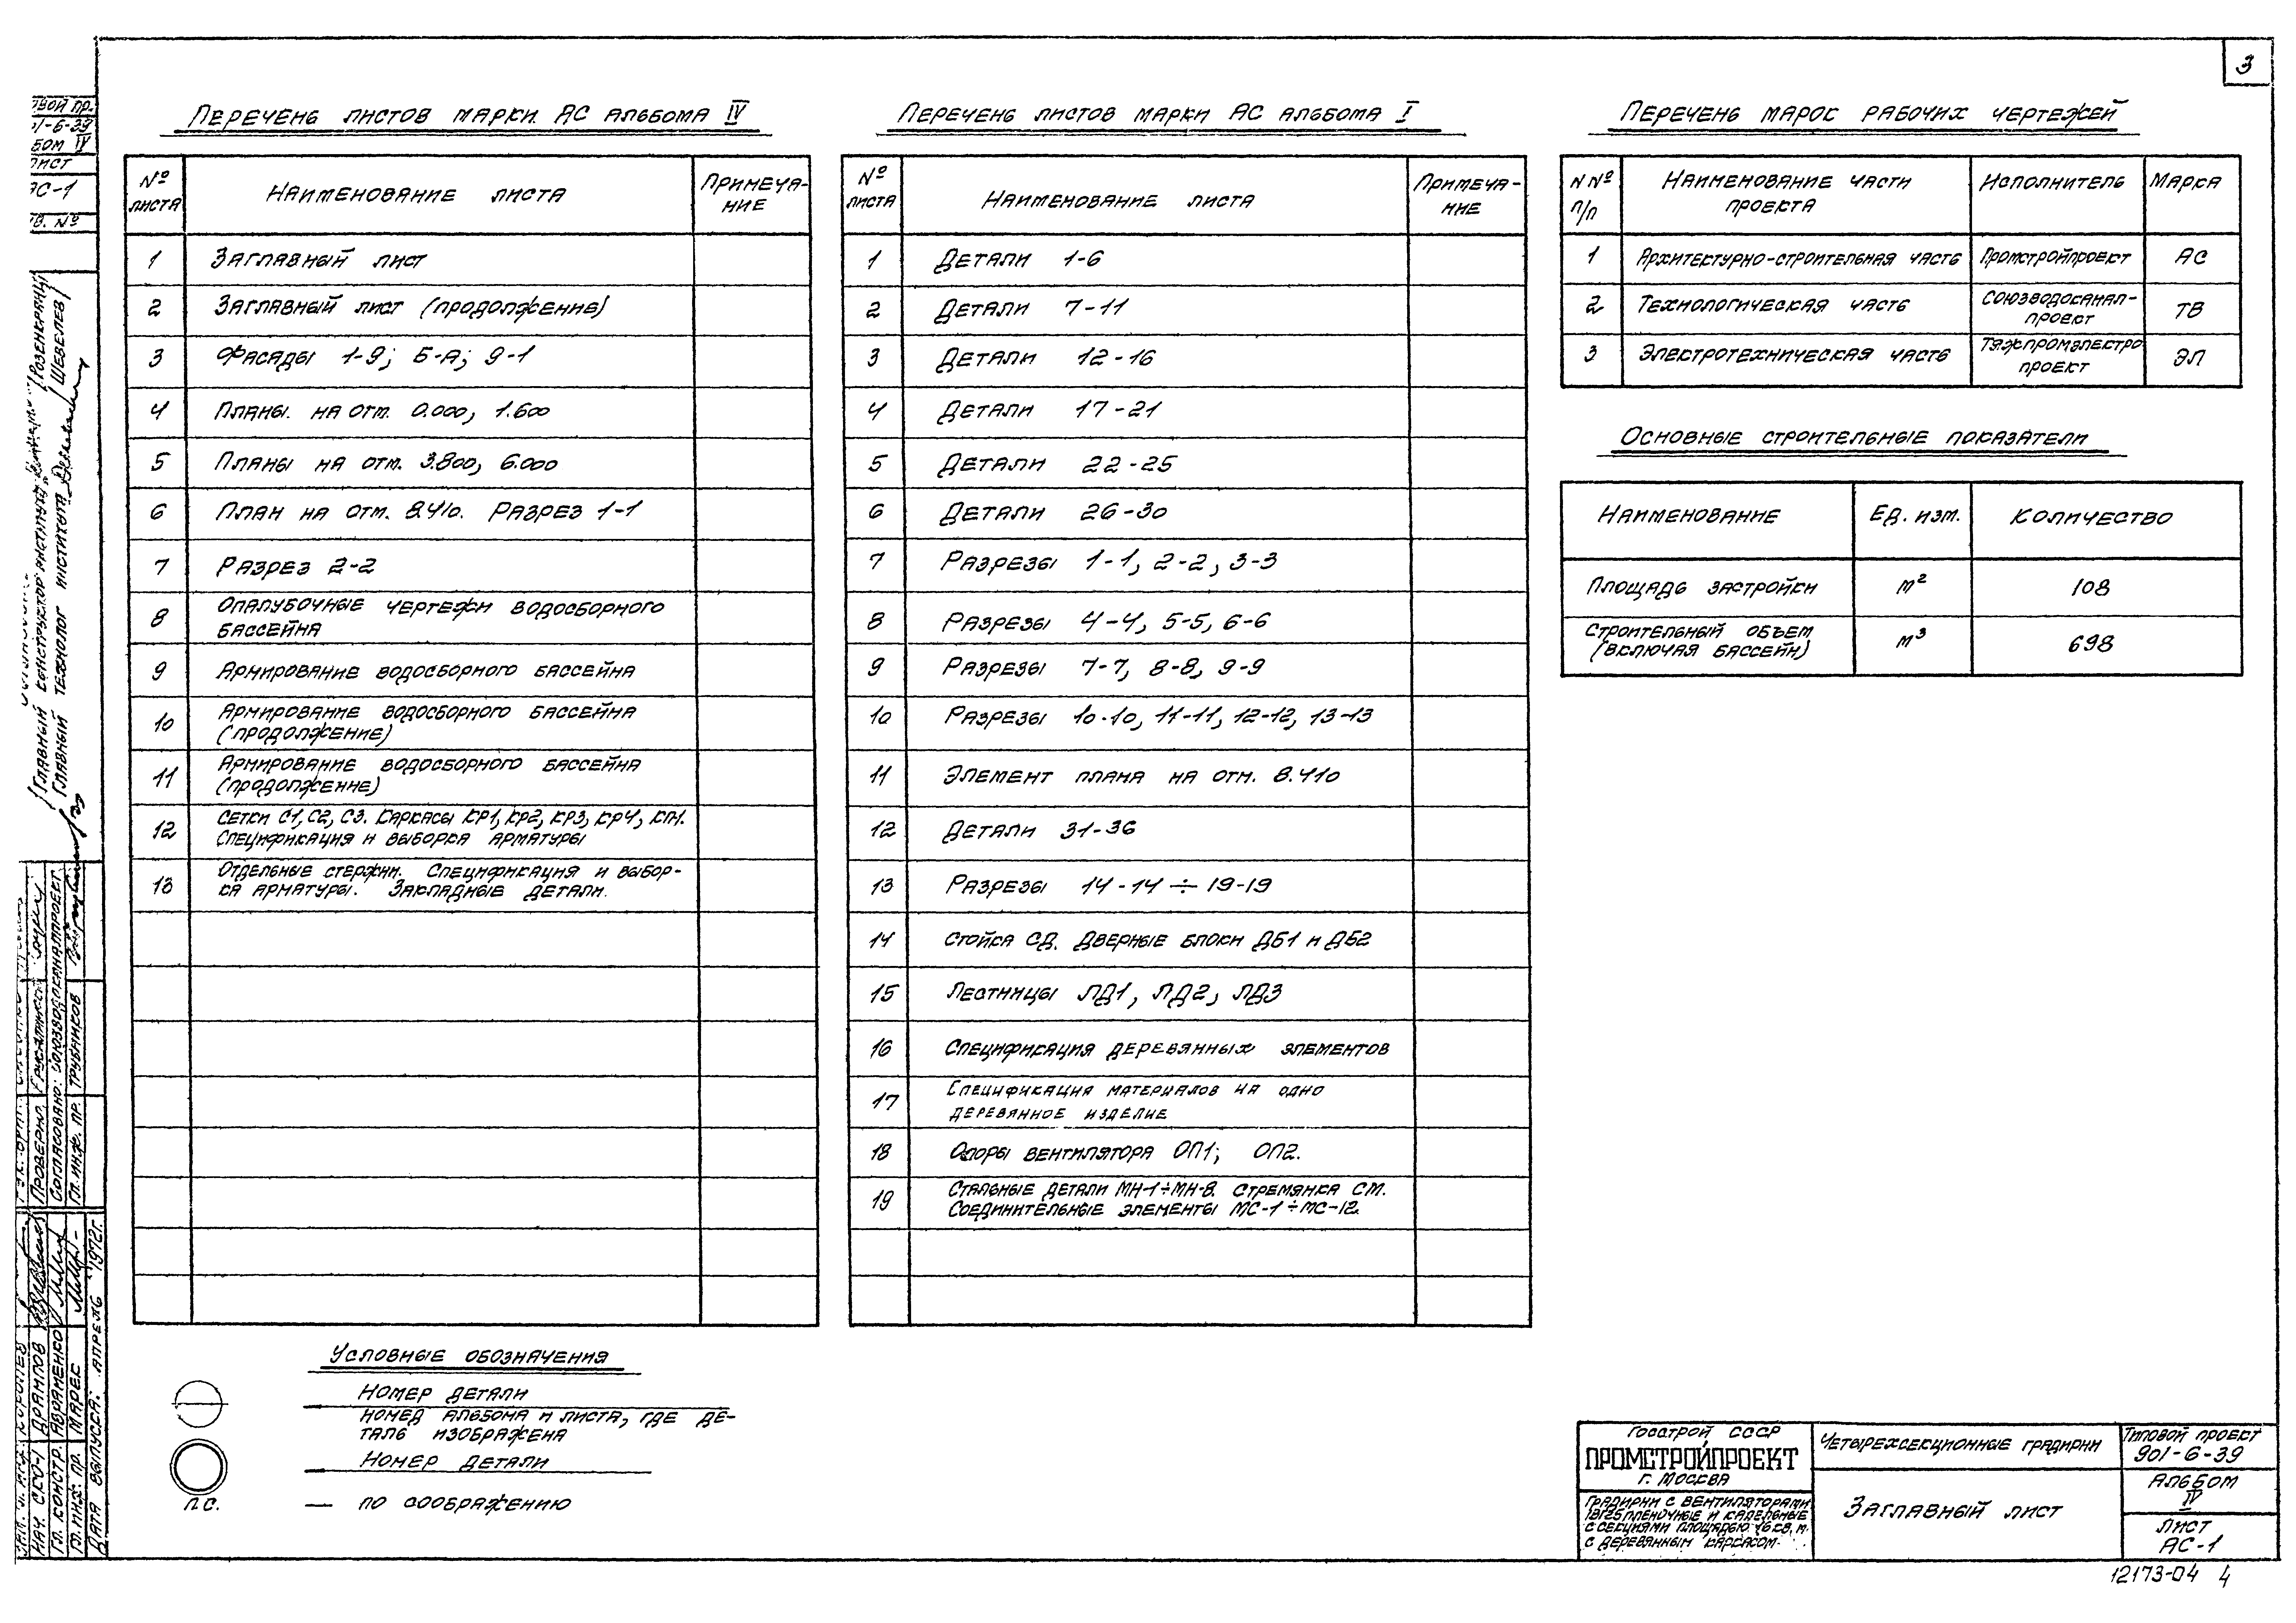 3
Перечень листов марки АС альбома IV
№ листа
Наименование листа
Примеча-
ние
1 Заглавный лист
2 Заглавный лист (продолжение)
3 Фасады 1-9; Б-А; 9-1
4 Планы на отм. 0.000, 1.600
5 Планы на отм. 3.800, 6.000
6 План на отм. 8.410. Разрез 1-1
7 Разрез 2-2
8 Опалубочные чертежи водосборного
бассейна
9 Армирование водосборного бассейна
10 Армирование водосборного бассейна
(продолжение)
11 Армирование водосборного бассейна
(продолжение)
12 Сетки С1, С2, С3. Каркасы КР1, КР2, КР3, КР4, КП1.
Спецификация и выборка арматуры
13 Отдельные стержни. Спецификация и выбор-
ка арматуры. Закладные детали.
Перечень листов марки АС альбома I
№ листа
Наименование листа
Примеча-
ние
1 Детали 1-6
2 Детали 7-11
3 Детали 12-16
4 Детали 17-21
5 Детали 22-25
6 Детали 26-30
7 Разрезы 1-1, 2-2, 3-3
8 Разрезы 4-4, 5-5, 6-6
9 Разрезы 7-7, 8-8, 9-9
10 Разрезы 10-10, 11-11, 12-12, 13-13
11 Элемент плана на отм. 8.410
12 Детали 31-36
13 Разрезы 14-14 ÷ 19-19
14 Стойка СД. Дверные блоки ДБ1 и ДБ2
15 Лестницы ЛД1, ЛД2, ЛД3
16 Спецификация деревянных элементов
17 Спецификация материалов на одно
деревянное изделие
18 Опоры вентилятора ОП1; ОП2.
19 Стальные детали МН-1÷МН-8. Стремянка СМ.
Соединительные элементы МС-1÷МС-12.
Перечень марок рабочих чертежей
N Nº
п/п
Наименование части
проекта
Исполнитель
Марка
1 Архитектурно-строительная часть Промстройпроект АС
2 Технологическая часть Союзводоканал-
проект ТВ
3 Электротехническая часть Тяжпромэлектро
проект ЭЛ
Основные строительные показатели
Наименование Ед. изм. Количество
Площадь застройки м² 108
Строительный объем
(включая бассейн) м³ 698
Условные обозначения
Номер детали
Номер альбома и листа, где де-
таль изображена
Номер детали
п.с. — по соображению
Госстрой СССР
ПРОМСТРОЙПРОЕКТ
г. Москва
Градирни с вентиляторами
1ВГ25 пленочные и капельные
с секциями площадью 16 кв. м.
с деревянным каркасом.
Четырехсекционные градирни
Заглавный лист
Типовой проект
901-6-39
Альбом
IV
Лист
АС-1
12173-04 4
вой пр.
01-6-39
бом IV
лист
АС-1
в. №
Главный конструктор института /Розенкранц/
Главный технолог института /Шевелев/
Проверил
Согласовано: Союзводоканалпроект
Гл. инж. пр. Трубников
Королев
Нач. СКО-1 Дрампов
Гл. констр. Авраменко
Гл. инж. пр. Марес
Дата выпуска: апрель 1972г.